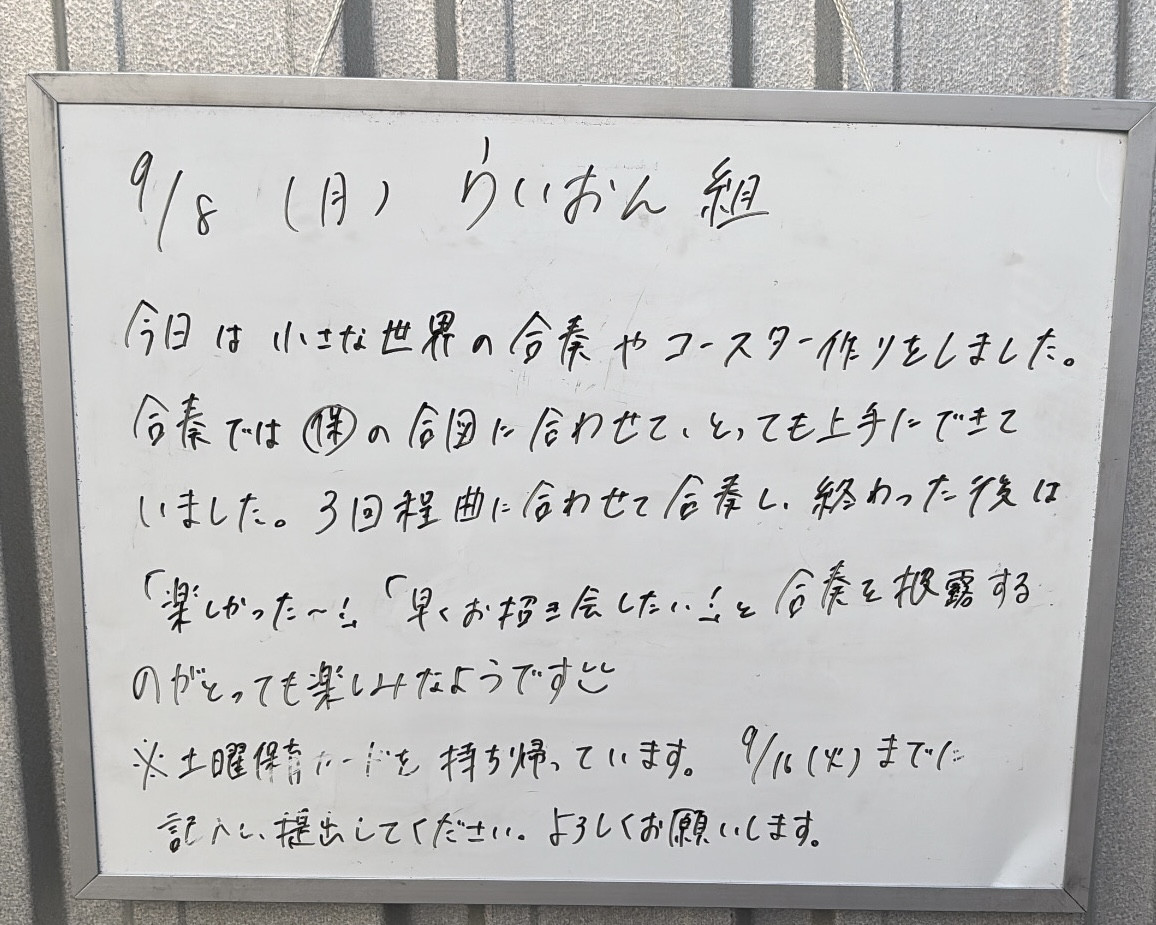 9/8 (月) らいおん組
今日は小さな世界の合奏やコースター作りをしました。
合奏では㋭の合図に合わせて、とっても上手にできて
いました。3回程曲に合わせて合奏し、終わった後は
「楽しかった~!」「早くお招き会したい!」と合奏を披露する
のがとっても楽しみなようです
※土曜保育カードを持ち帰っています。9/16(火)までに
記入し、提出してください。よろしくお願いします。